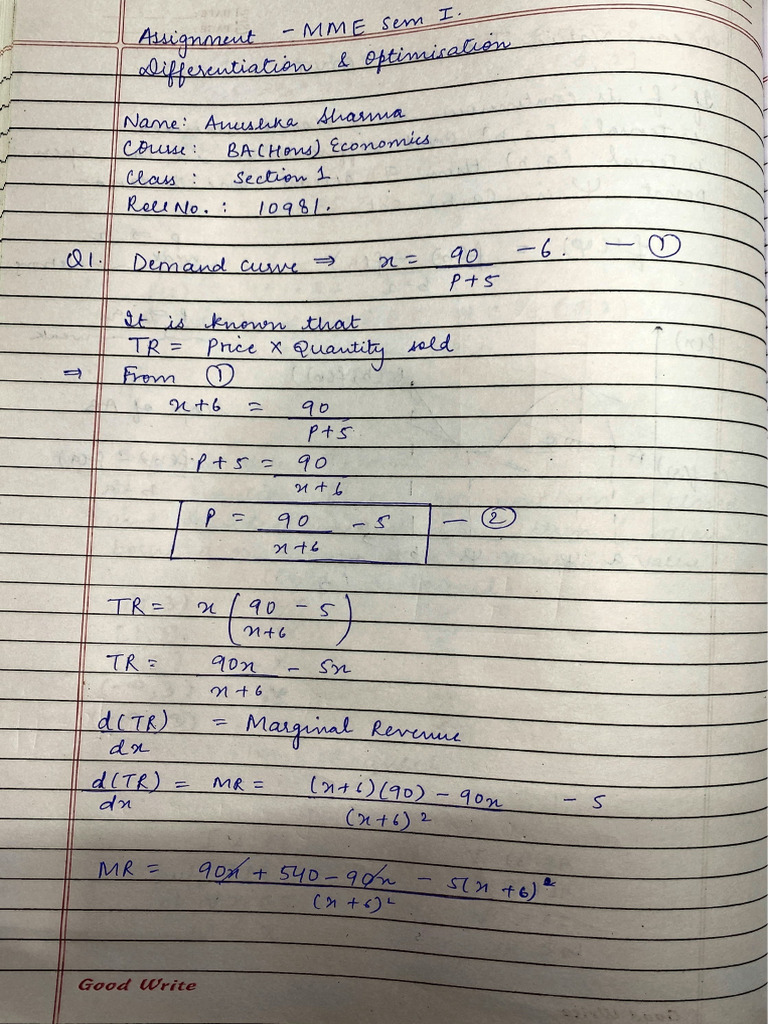 Assignment - MME Sem I.
Differentiation & Optimisation
Name: Anushka Sharma
Course: BA(Hons) Economics
Class : Section 1
Roll No. : 10981.
Q1. Demand curve ⇒ x = 90/(P+5) - 6. — ①
It is known that
TR = Price × Quantity sold
⇒ From ①
x+6 = 90/(P+5)
P+5 = 90/(x+6)
P = 90/(x+6) - 5 — ②
TR = x (90/(x+6) - 5)
TR = 90x/(x+6) - 5x
d(TR)/dx = Marginal Revenue
d(TR)/dx = MR = ((x+6)(90) - 90x)/(x+6)² - 5
MR = (90x + 540 - 90x - 5(x+6)²)/(x+6)²
Good Write